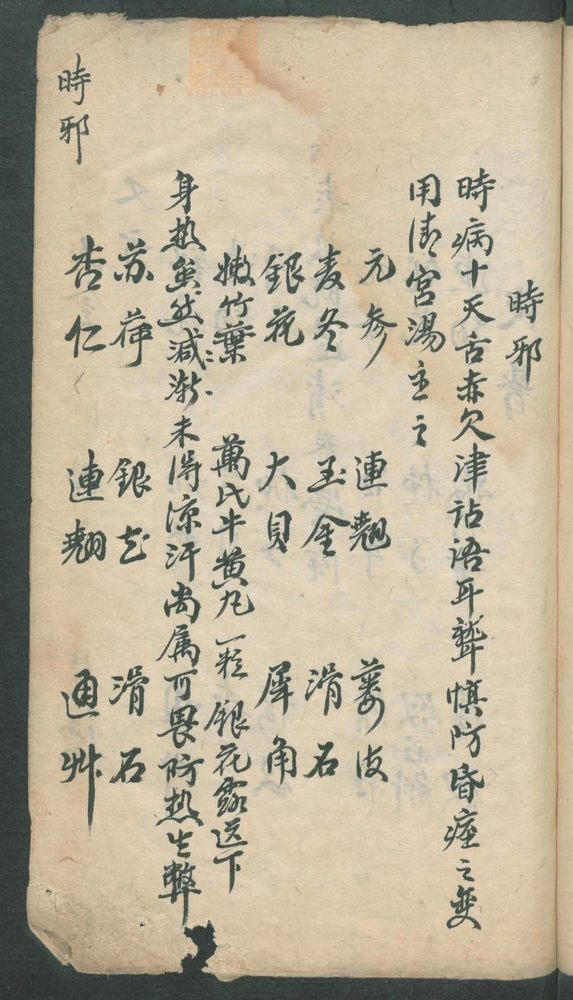 時邪
時病十天舌赤欠津詀语耳聾慎防昏痙之变
用清宮湯主之
元参 連翹 蔞皮
麦冬 玉金 滑石
銀花 大貝 犀角
嫩竹葉 萬氏牛黄丸一粒 銀花露送下
身热虽然减漸未得凉汗尚属可畏防热生弊
苏荷 銀花 滑石
杏仁 連翹 通艸
時邪